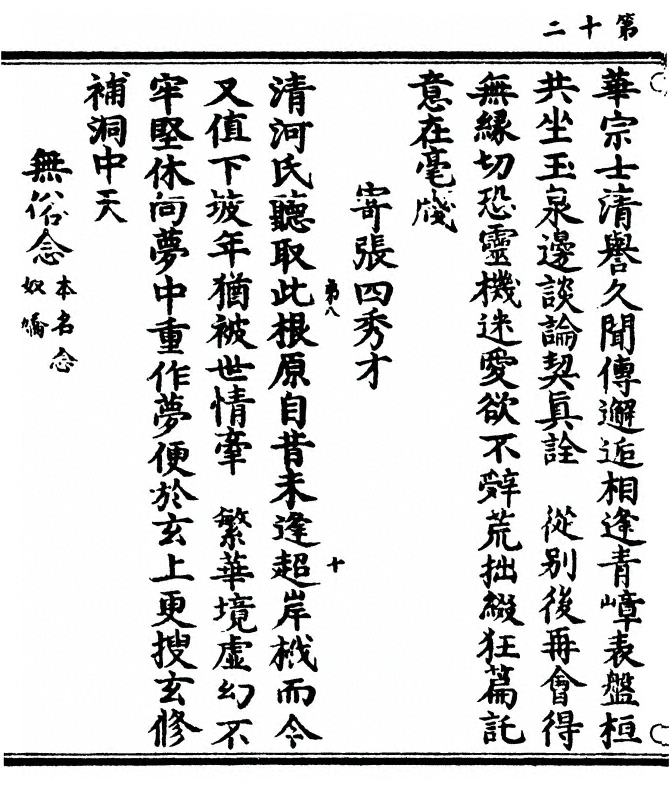 第十二
華宗士清譽久聞傳邂逅相逢青嶂表盤桓
共坐玉泉邊談論契眞詮　從別後再會得
無緣切恐靈機迷愛欲不辤荒拙綴狂篇託
意在毫牋
寄張四秀才
清河氏聽取此根原自昔未逢超岸栰而今
又值下坡年猶被世情牽　繁華境虛幻不
牢堅休向夢中重作夢便於玄上更搜玄修
補洞中天
無俗念
本名念
奴嬌
第八
十